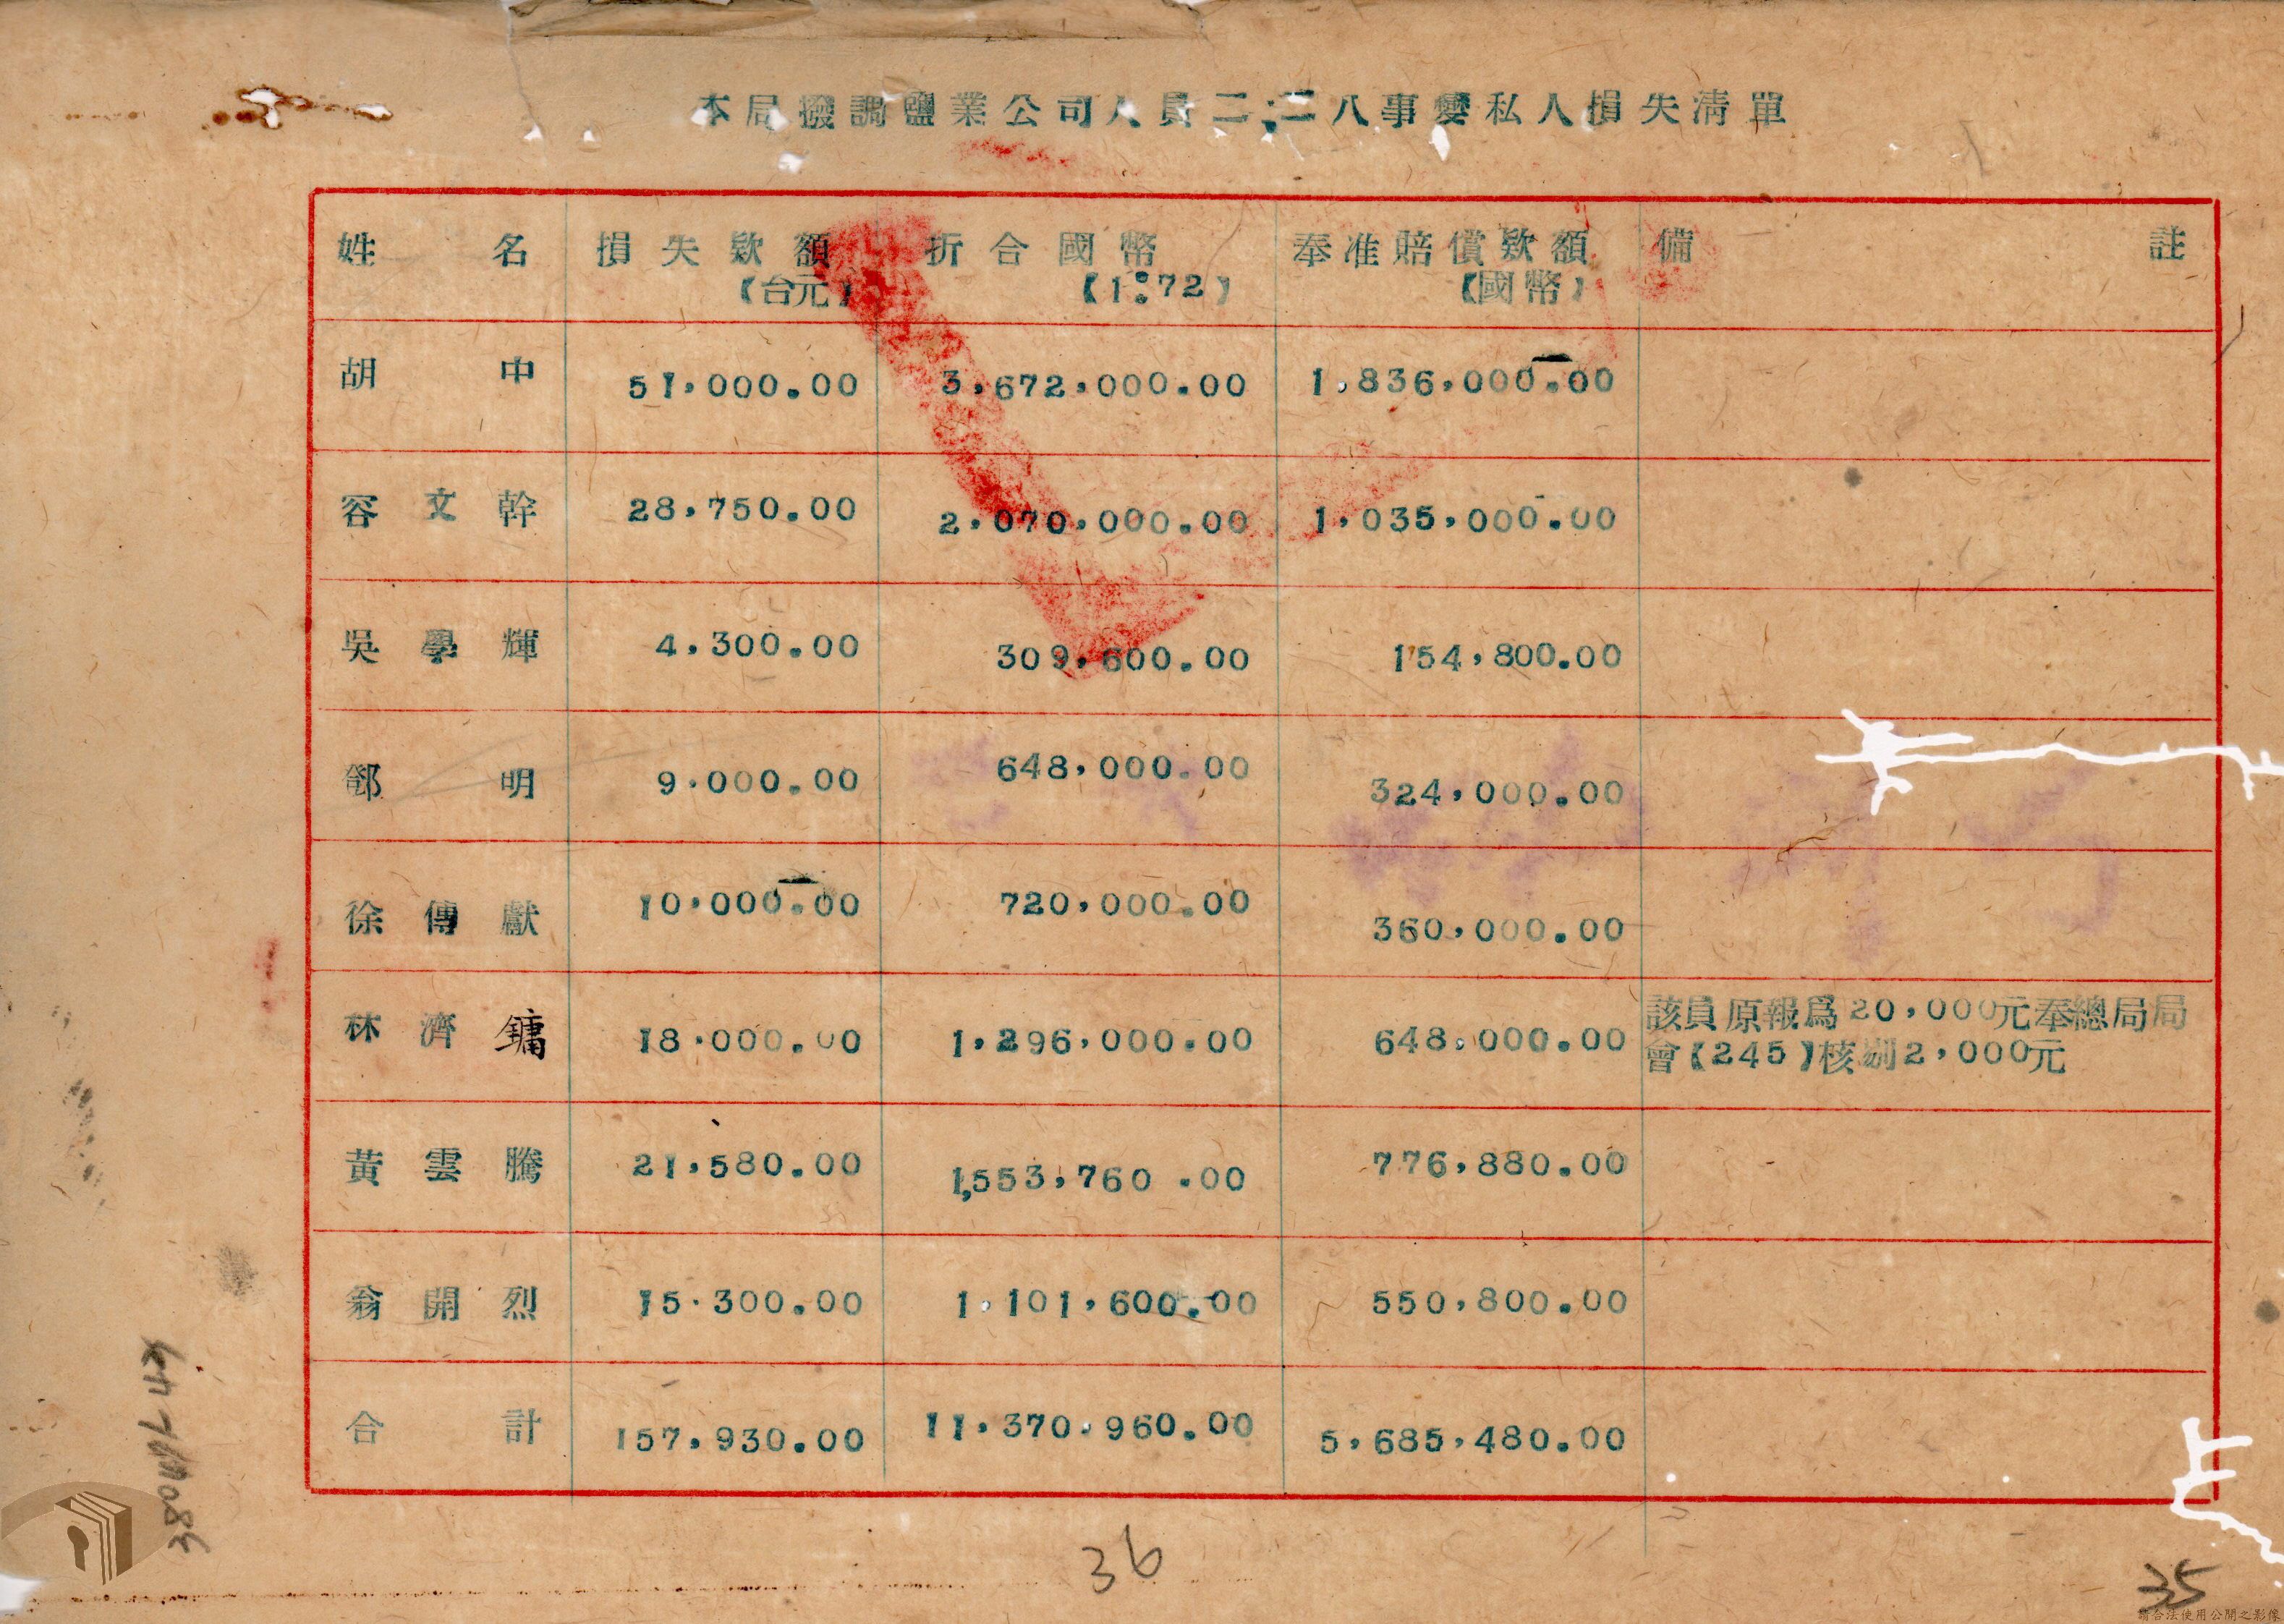 本局撥調鹽業公司人員二·二八事變私人損失清單
姓名 損失欵額【台元】 折合國幣【1:72】 奉准賠償欵額【國幣】 備註
胡中 51,000.00 3,672,000.00 1,836,000.00
容文幹 28,750.00 2,070,000.00 1,035,000.00
吳學輝 4,300.00 309,600.00 154,800.00
鄧明 9,000.00 648,000.00 324,000.00
徐傳獻 10,000.00 720,000.00 360,000.00
林濟鏞 18,000.00 1,296,000.00 648,000.00 該員原報爲20,000元奉總局局
會【245】核剔2,000元
黃雲騰 21,580.00 1,553,760.00 776,880.00
翁開烈 15,300.00 1,101,600.00 550,800.00
合計 157,930.00 11,370,960.00 5,685,480.00
36
35
請合法使用公開之影像